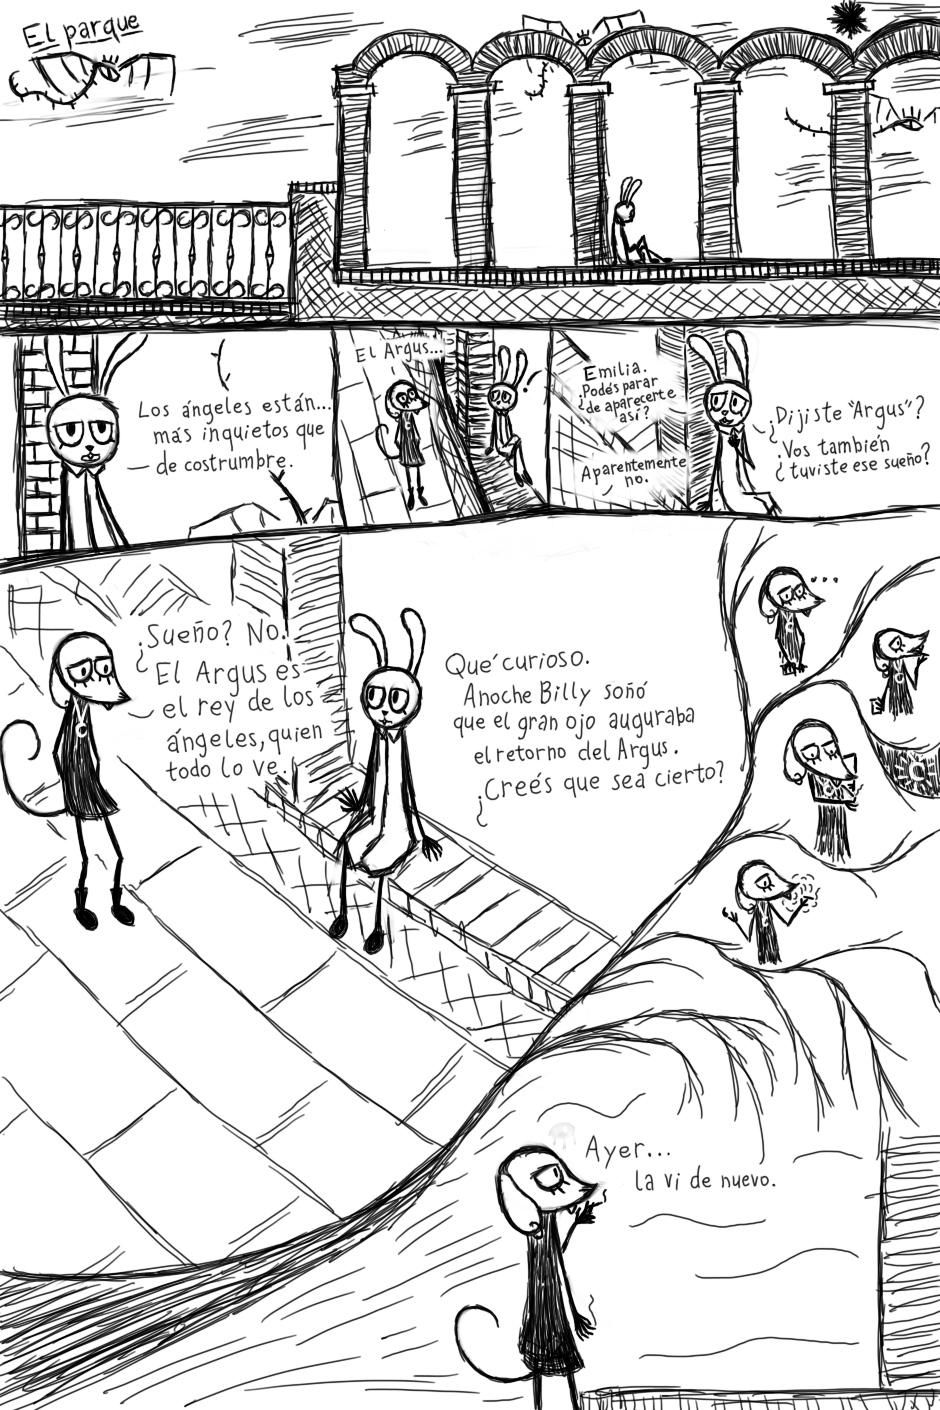 El parque
Los ángeles están...
más inquietos que
de costrumbre.
El Argus...
!
Emilia.
¿Podés parar
de aparecerte
así?
Aparentemente
no.
¿Dijiste "Argus"?
¿Vos también
tuviste ese sueño?
¿Sueño? No.
El Argus es
el rey de los
ángeles, quien
todo lo ve.
Qué curioso.
Anoche Billy soñó
que el gran ojo auguraba
el retorno del Argus.
¿Creés que sea cierto?
...
Ayer...
la vi de nuevo.